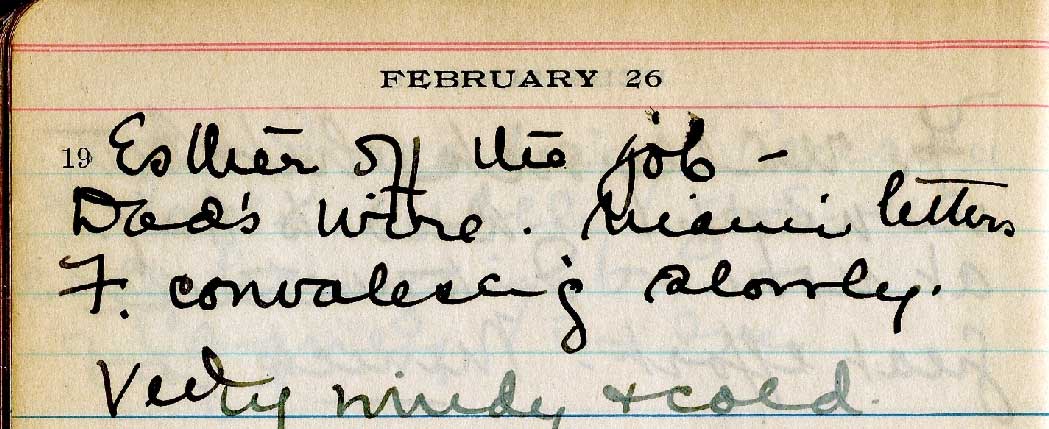 FEBRUARY 26
19 Esther off the job -
Dad's wire. Miami letters
F. convalescing slowly.
Very windy & cold.